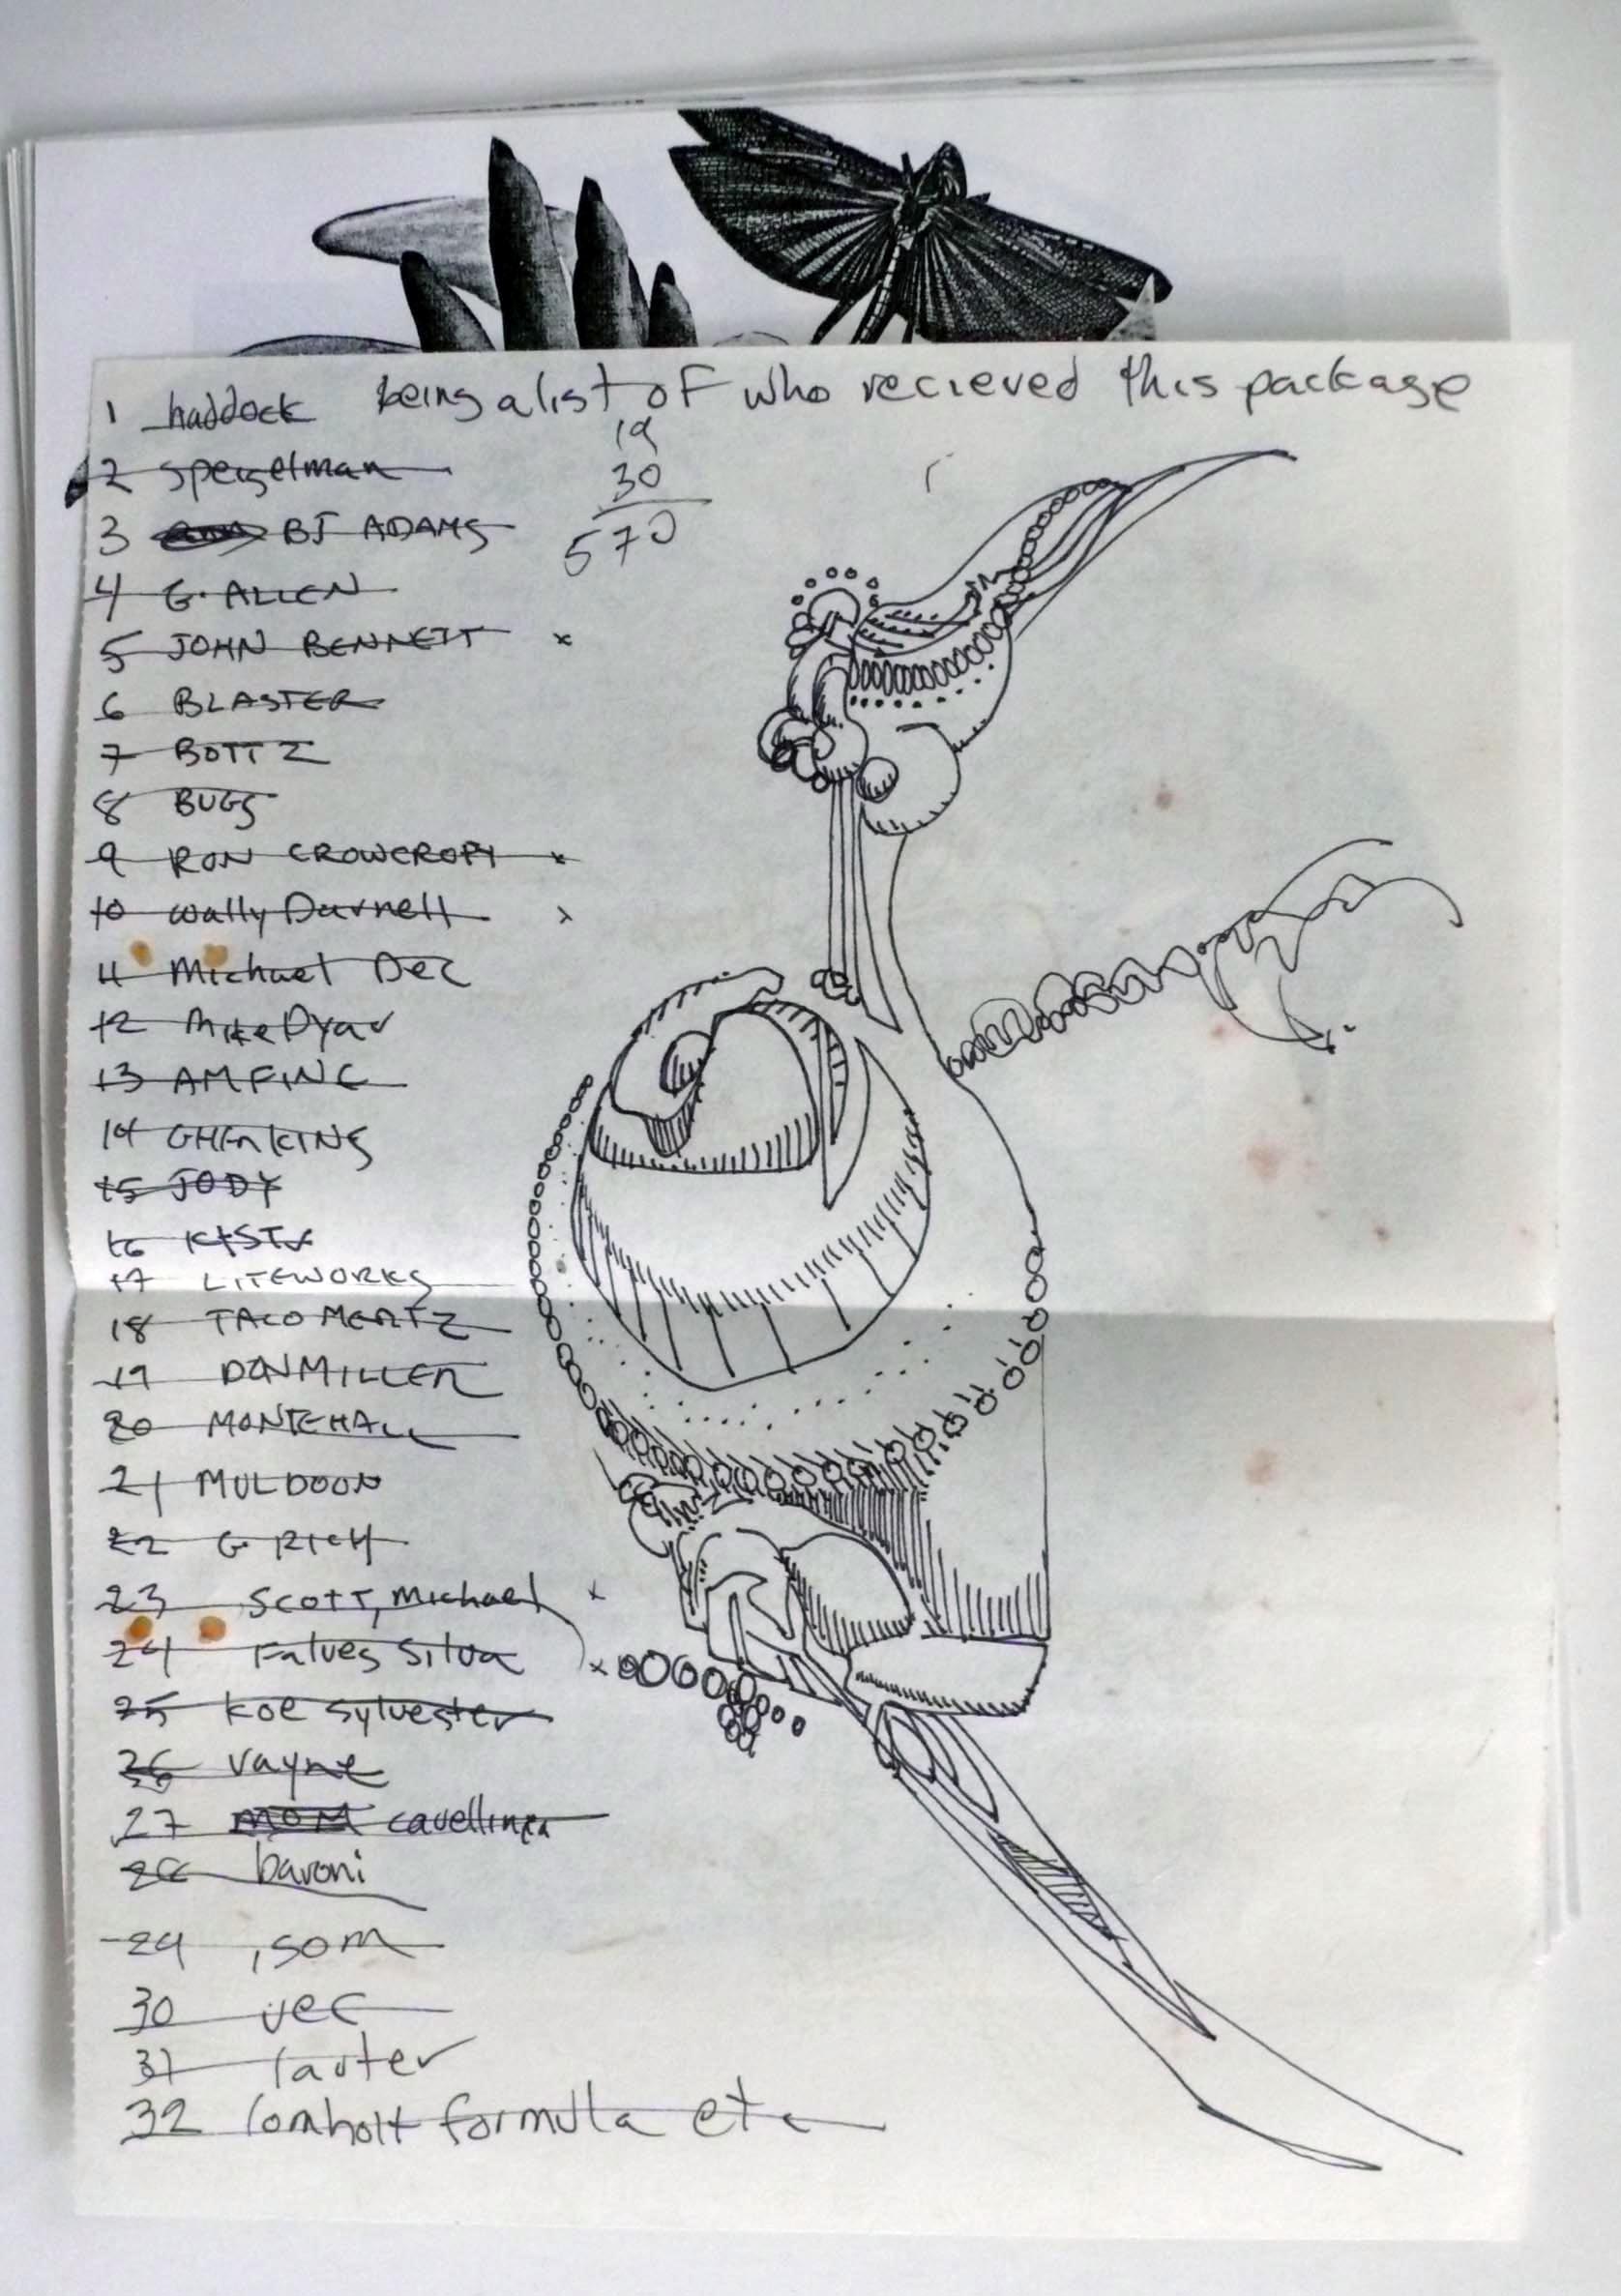 being a list of who recieved this package
1 haddock
19
30
570
2 Speigelman
3 BJ ADAMS
4 G. ALLEN
5 JOHN BENNETT x
6 BLASTER
7 BOTTZ
8 BUGS
9 RON CROWCROFT x
10 Wally Darnell x
11 Michael Dec
12 Mike Dyar
13 AM FINE
14
15 JODY
16
17 LITEWORKS
18 TACO MERTZ
19 DON MILLER
20 MONTEHALL
21 MULDOON
22 G. RICH
23 SCOTT, Michael x
24 Falves Silva x
25 Koe Sylvester
26 Vayne
27 MOM cavellini
28 baroni
29
30 vec
31
32 lomholt formula etc